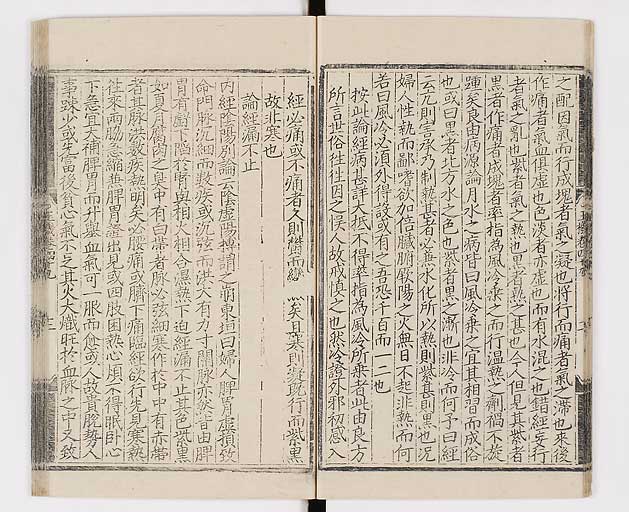 之配因氣而行成塊者氣之凝也將行而痛者氣之滯也來後
作痛者氣血俱虛也色淡者亦虛也而有水混之也錯經妄行
者氣之亂也紫者氣之熱也黑者熱之甚也今人但見其紫者
黑者作痛者成塊者率指為風冷乗之而行温熱之劑禍不旋
踵矣良由病源論月水之病皆曰風冷乗之宜其相習而成俗
也或曰黑者北方水之色也紫者黑之漸也非冷而何予曰經
云亢則害承乃制熱甚者必兼水化所以熱則紫甚則黑也况
婦人性熱而鄙嗜欲加倍臟腑厥陽之火無日不起非熱而何
若曰風冷必須外得設或有之五恐千百而一二也
按此論經病甚詳大抵不得率指為風冷所乗者此由良方
所言世俗徃徃因之悞人故戒慎之也然冷證外邪初感入
經必痛或不痛者久則欝而變 矣且寒則凝既行而紫黒
故非寒也
論經漏不止
内經陰陽别論云陰虛陽搏謂之崩東垣曰婦人脾胃虛損致
命門脉沉細而數疾或沉弦而洪大有力寸關脉亦然皆由脾
胃有虧下陷於腎與相火相合濕熱下迫經漏不止其色紫黒
如夏月腐肉之臭中有白帶者脉必弦細寒作於中中有赤帶
者其脉洪數疾熱明矣必腰痛或臍下痛臨經欲行先見寒熱
徃來兩脇急縮兼脾胃證出見或四肢困熱心煩不得眠卧心
下急宜大補脾胃而升舉血氣可一服而愈或人故貴脱勢人
事踈少或先富後貧心氣不足其火大熾旺於血脉之中又致